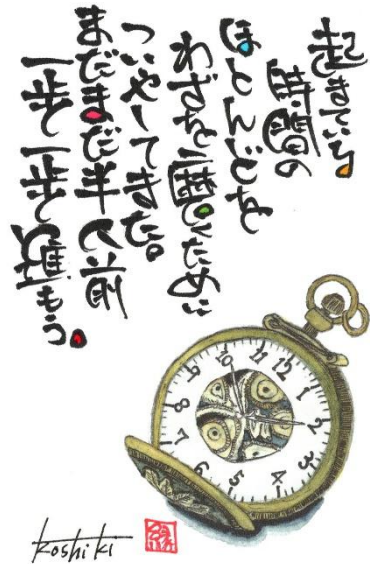 起きている
時間の
ほとんどを
わざを磨くために
ついやしてきた。
まだまだ半人前
一歩一歩進もう。
12
1
2
3
4
5
6
7
8
9
10
11
Koshiki